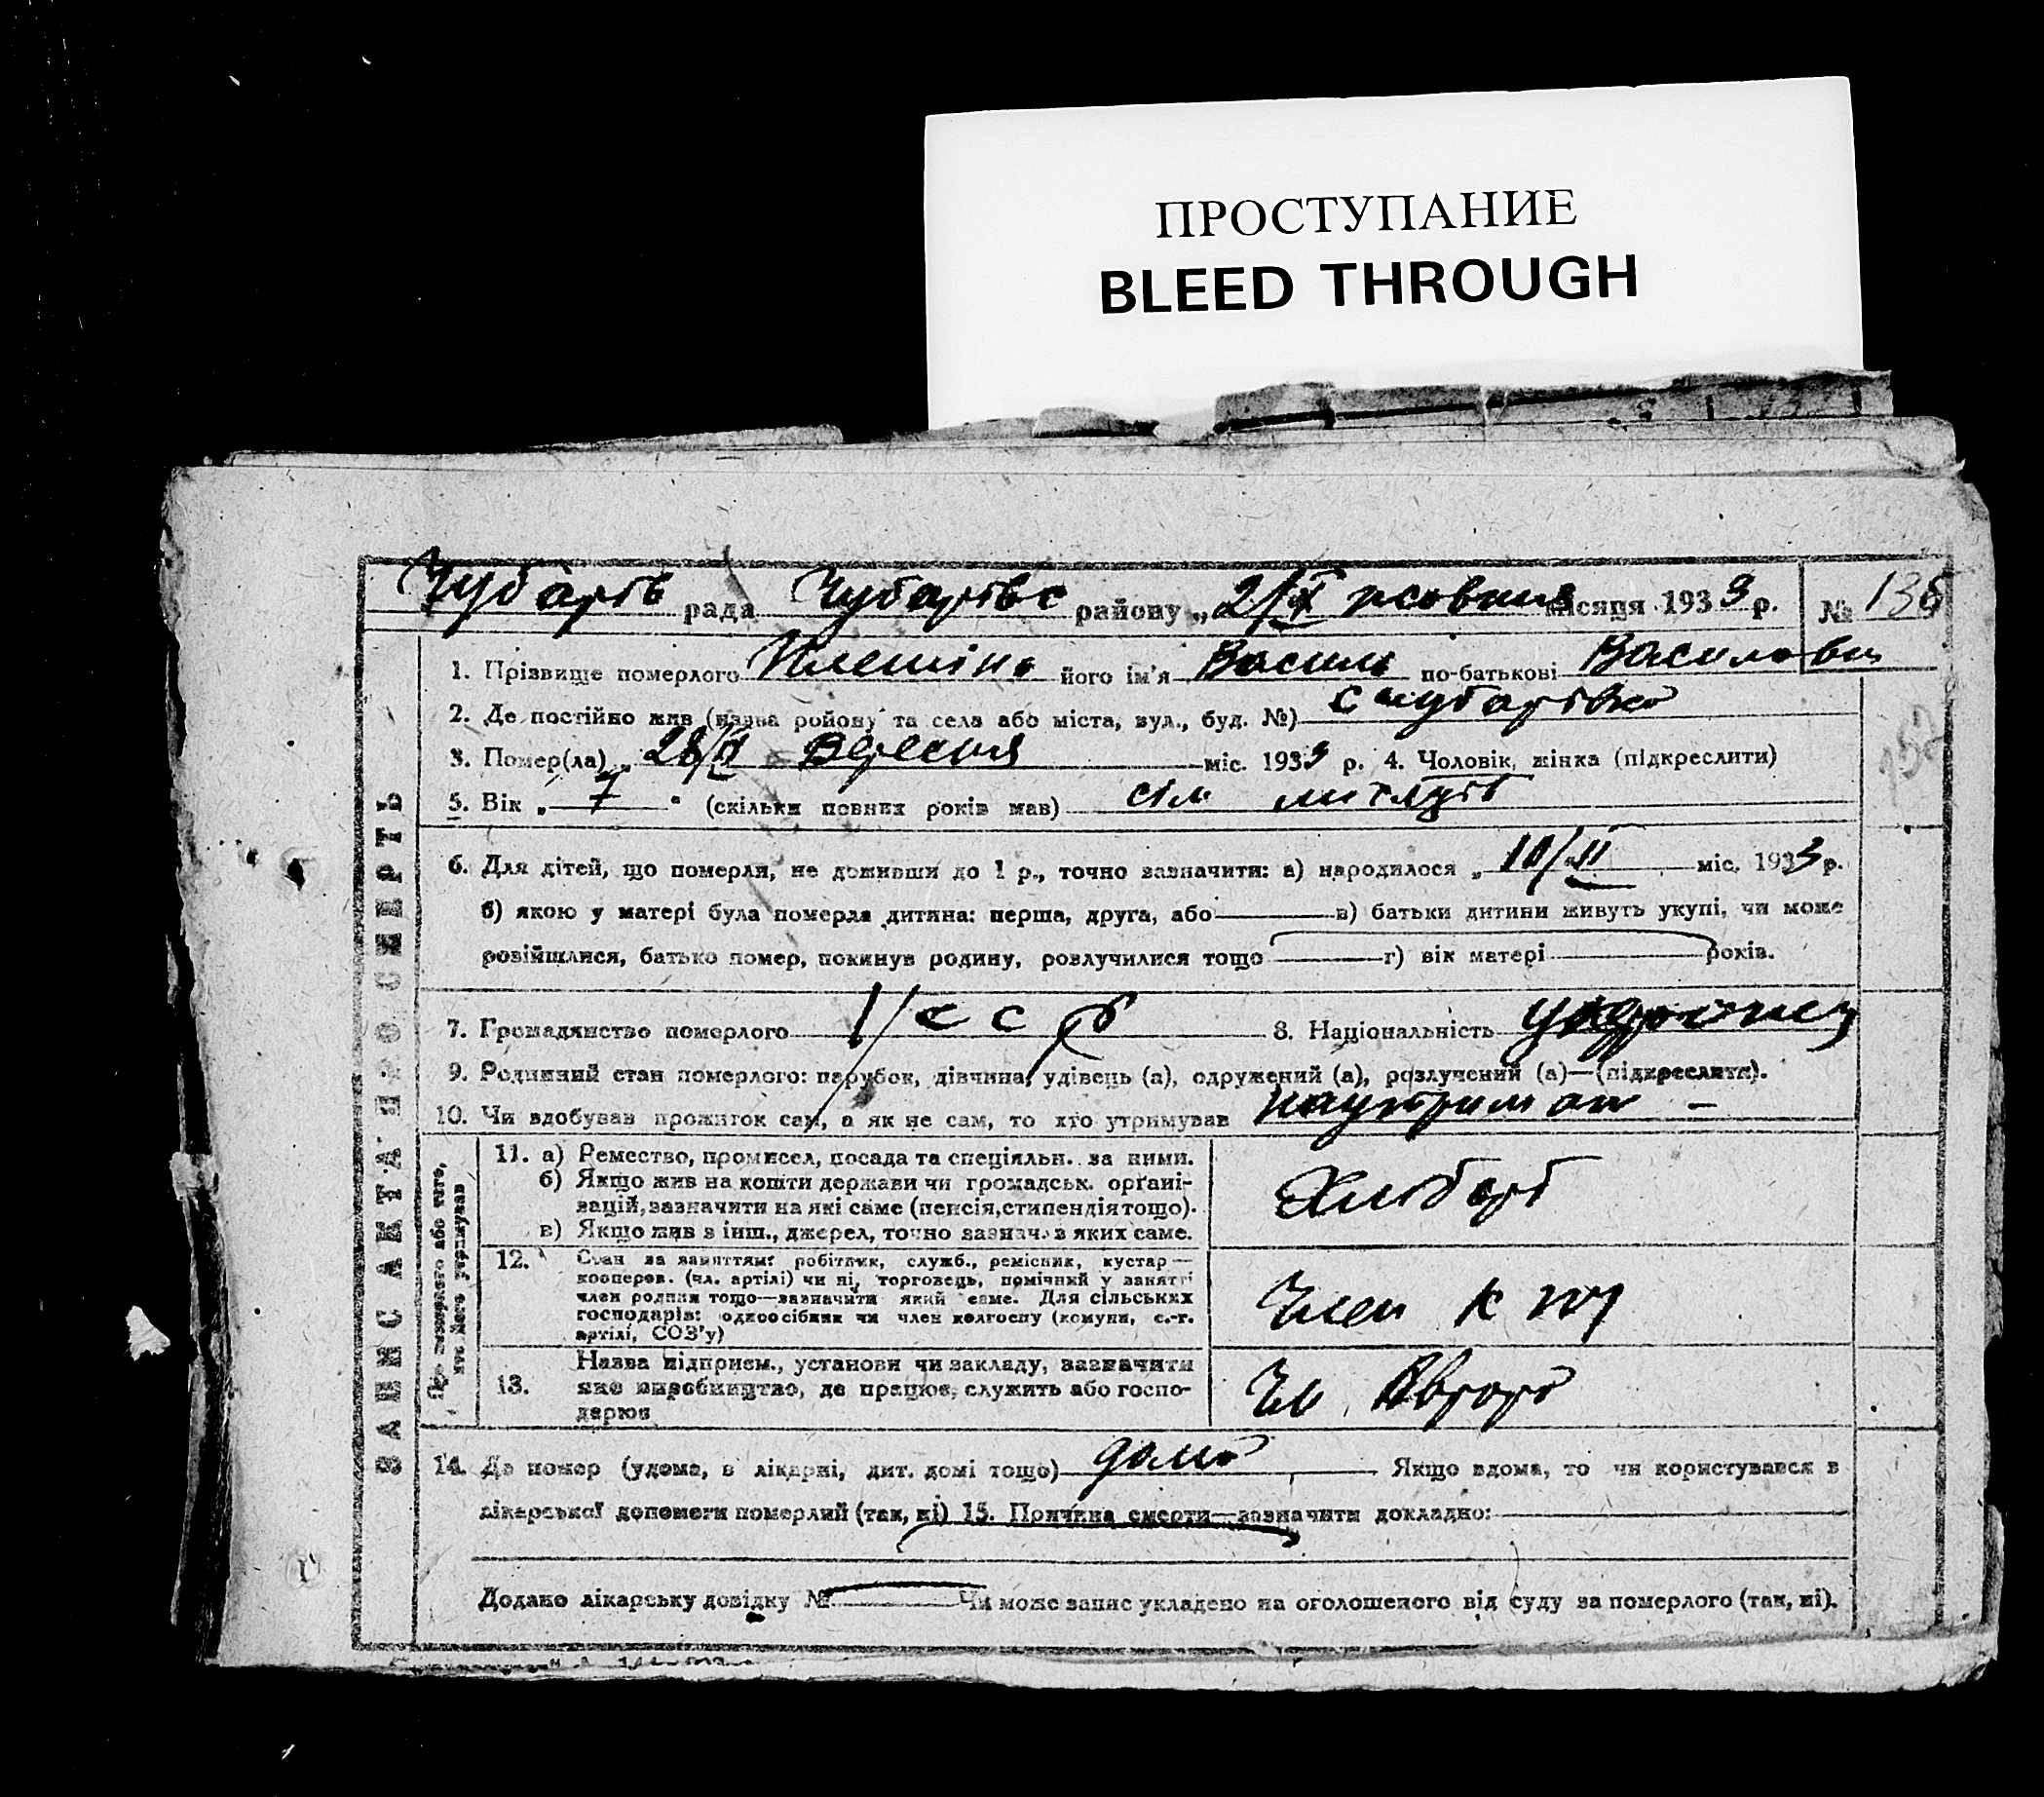 ПРОСТУПАНИЕ
BLEED THROUGH
Чубарів рада Чубарівс району „2/X жовтня місяця 1933 р. № 136
1. Прізвище померлого його ім'я Василь по-батькові Василови
2. Де постійно жив (назва району та села або міста, вул., буд. №) с Чубарівка
3. Помер(ла) „28/IX Вересня міс. 1933 р. 4. Чоловік, жінка (підкреслити)
5. Вік „ 7 " (скільки повних років мав) сім
6. Для дітей, що померли, не доживши до 1 р., точно зазначити: а) народилося „10/II міс. 1933 р.
б) якою у матері була померла дитина: перша, друга, або в) батьки дитини живуть укупі, чи може
розійшлися, батько помер, покинув родину, розлучилися тощо г) вік матері років.
7. Громадянство померлого 8. Національність
9. Родинний стан померлого: парубок, дівчина, удівець (а), одружений (а), розлучений (а)—(підкреслити).
10. Чи здобував прожиток сам, а як не сам, то хто утримував
ЗАПИС АКТА ПРО СМЕРТЬ
Про померлого або того, хто його утримував
11. а) Ремество, промисел, посада та спеціяльн. за ними.
б) Якщо жив на кошти держави чи громадськ. орґані-
зацій, зазначити на які саме (пенсія, стипендія тощо).
в) Якщо жив з інш., джерел, точно зазнач. з яких саме.
Хлібороб
12. Стан за заняттям: робітник, служб., ремісник, кустар—
кооперов. (чл. артілі) чи ні, торговець, помічний у занятті
член родини тощо—зазначити який саме. Для сільських
господарів: одноосібник чи член колгоспу (комуни, с.-г.
артілі, СОЗ'у)
Член
13. Назва підприєм., установи чи закладу, зазначити
яке виробництво, де працює, служить або госпо-
дарює
14. Де помер (удома, в лікарні, дит. домі тощо) дома Якщо вдома, то чи користувався в
лікарської допомоги померлий (так, ні) 15. Причина смерти—зазначити докладно:
Додано лікарську довідку № Чи може запис укладено на оголошеного від суду за померлого (так, ні).